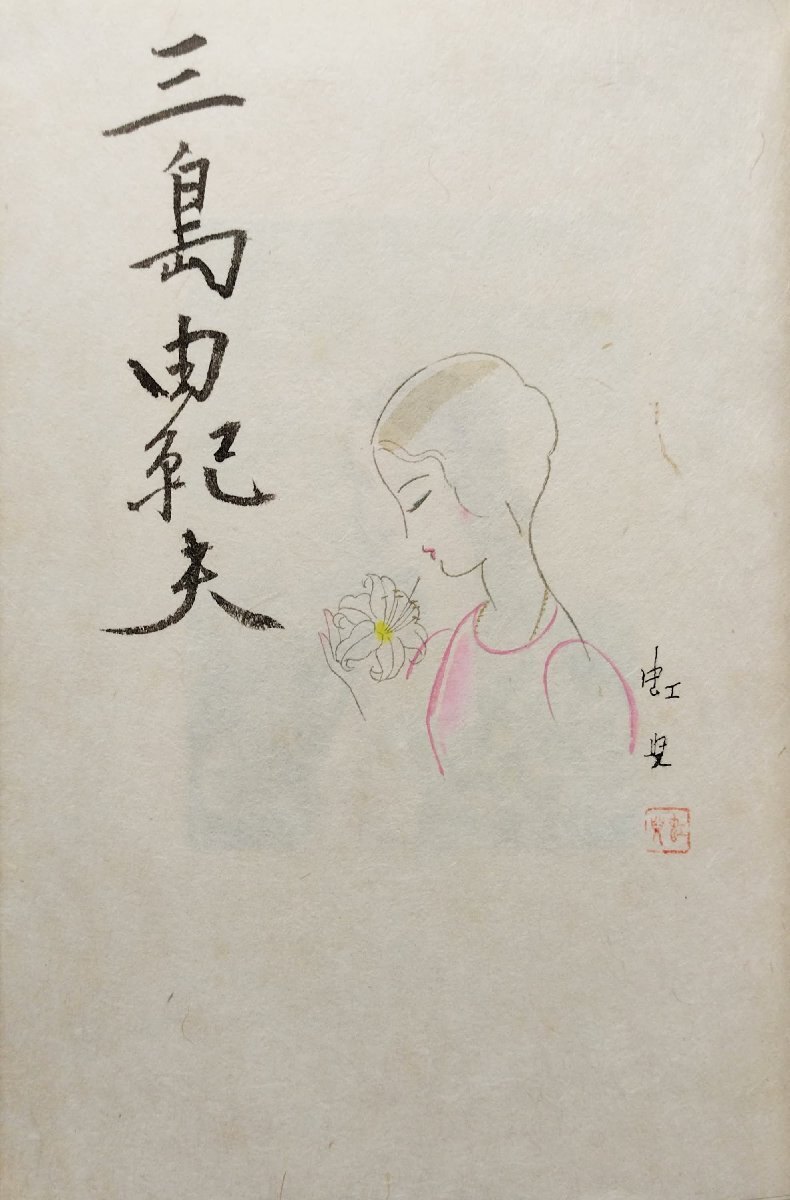 三島由紀夫
虹児